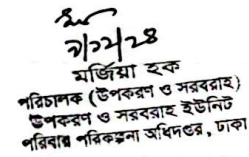 ৯/১২/২৪
মর্জিয়া হক
পরিচালক (উপকরণ ও সরবরাহ)
উপকরণ ও সরবরাহ ইউনিট
পরিবার পরিকল্পনা অধিদপ্তর, ঢাকা